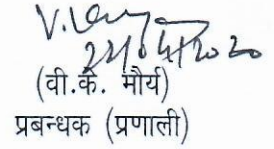 22/04/2020
(वी.के. मौर्य)
प्रबन्धक (प्रणाली)